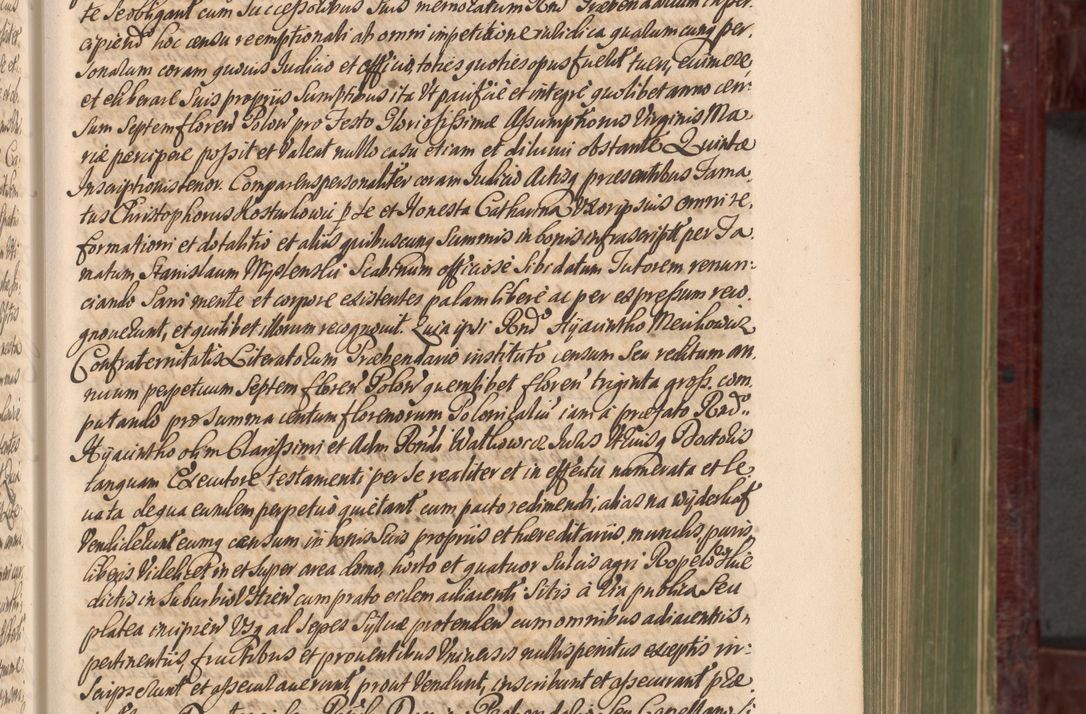 te se obligant cum Successoribus suis memoratum Rnd Præbendarium in per
cipiend hoc censu reemptionali ab omni impetitione iuridica qualumcunq per,
sonarum coram quouis Iudicio et officio, toties quoties opus fuerit tueri, euincere
et eliberare suis proprijs sumptibus ita Vt pacificè et integrè quolibet anno cen
sum Septem floren Polon pro Festo Gloriosissimæ Assumptionis Virginis Ma
riæ percipere possit et Valeat nullo casu etiam et diluuij obstante Quintæ
Inscriptionis tenor. Comparens personaliter coram Iudicio Actisq præsentibus Fama
tus Christophorus et Honesta Catharina Vxor ipsius omni re,
formationi et dotalitio et alijs quibuscunq summis in bonis infrascriptis per Fa
matum Stanislaum Myslenski Scabinum officiosè sibi datum Tutorem renun:
ciando sani mente et corpore existentes palam liberè ac per expressum reco
gnouerunt, et quilibet illorum recognouit. Quia ipsi Rndo Hyacintho
Confraternitatis Literatorum Præbendario instituto censum seu reditum an,
nuum perpetuum Septem floren Polon quemlibet floren triginta gross. com
putando pro summa centum florenorum Polonicaliu iam à præfato Rndo.
Hyacintho olim Clarissimi et Adm Rndi Iuris Vtriusq Doctoris
tanquam Executore testamenti per se realiter et in effectu numerata et le
uata de qua eundem perpetuò quietant cum pacto redimendi, alias na wyderkaf
Vendiderunt eumq censum in bonis suis proprijs et hæreditarijs, mundis, puris,
liberis Videlicet in et super area domo, horto et quatuor sulcis agri
dictis in Suburbio cum prato eidem adiacenti sitis à Via publica seu
platea incipien Vsq ad Sepes Syluæ protenden cum omnibus adiacentis,
pertinentijs, fructibus et prouentibus Vniuersis nullis penitus exceptis in:
scripserunt et assecurauerunt, prout Vendunt, inscribunt et assecurant præ